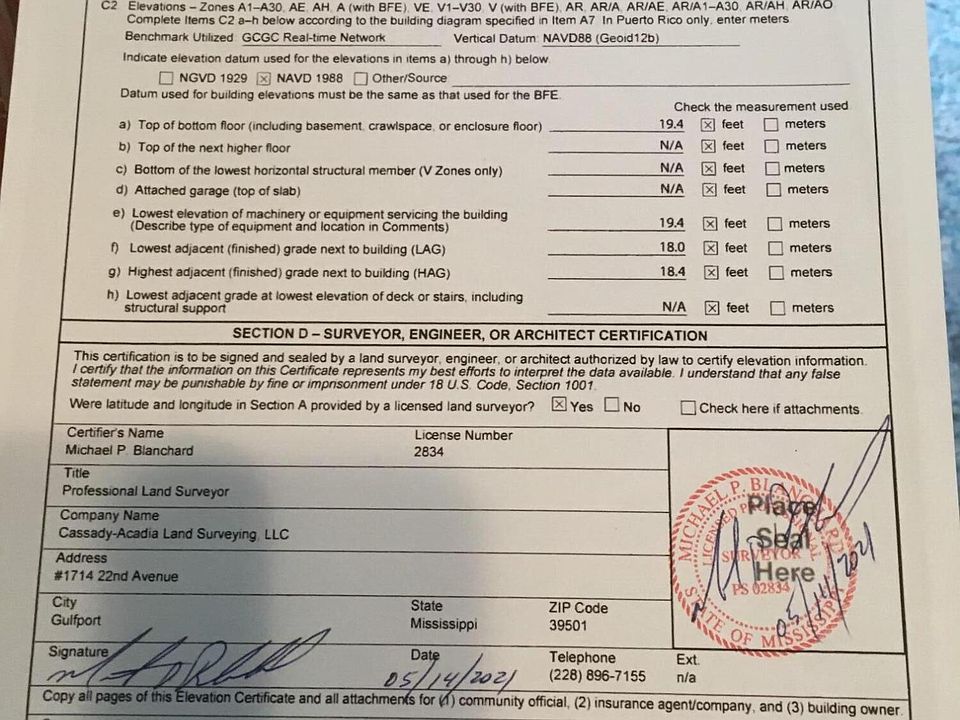 C2. Elevations – Zones A1–A30, AE, AH, A (with BFE), VE, V1–V30, V (with BFE), AR, AR/A, AR/AE, AR/A1–A30, AR/AH, AR/AO
Complete Items C2 a–h below according to the building diagram specified in Item A7. In Puerto Rico only, enter meters
Benchmark Utilized: GCGC Real-time Network Vertical Datum: NAVD88 (Geoid12b)
Indicate elevation datum used for the elevations in items a) through h) below.
☐ NGVD 1929 ☒ NAVD 1988 ☐ Other/Source:
Datum used for building elevations must be the same as that used for the BFE.
Check the measurement used
a) Top of bottom floor (including basement, crawlspace, or enclosure floor) 19.4 ☒ feet ☐ meters
b) Top of the next higher floor N/A ☒ feet ☐ meters
c) Bottom of the lowest horizontal structural member (V Zones only) N/A ☒ feet ☐ meters
d) Attached garage (top of slab) N/A ☒ feet ☐ meters
e) Lowest elevation of machinery or equipment servicing the building
(Describe type of equipment and location in Comments) 19.4 ☒ feet ☐ meters
f) Lowest adjacent (finished) grade next to building (LAG) 18.0 ☒ feet ☐ meters
g) Highest adjacent (finished) grade next to building (HAG) 18.4 ☒ feet ☐ meters
h) Lowest adjacent grade at lowest elevation of deck or stairs, including
structural support N/A ☒ feet ☐ meters
SECTION D – SURVEYOR, ENGINEER, OR ARCHITECT CERTIFICATION
This certification is to be signed and sealed by a land surveyor, engineer, or architect authorized by law to certify elevation information.
I certify that the information on this Certificate represents my best efforts to interpret the data available. I understand that any false
statement may be punishable by fine or imprisonment under 18 U.S. Code, Section 1001.
Were latitude and longitude in Section A provided by a licensed land surveyor? ☒ Yes ☐ No ☐ Check here if attachments.
Certifier's Name License Number
Michael P. Blanchard 2834
Title
Professional Land Surveyor
Company Name
Cassady-Acadia Land Surveying, LLC
Address
#1714 22nd Avenue
City State ZIP Code
Gulfport Mississippi 39501
Place
Seal
Here
MICHAEL P. BLANCHARD
LICENSED PROFESSIONAL
SURVEYOR
PS 02834
STATE OF MISSISSIPPI
05/14/2021
Signature Date Telephone Ext.
05/14/2021 (228) 896-7155 n/a
Copy all pages of this Elevation Certificate and all attachments for (1) community official, (2) insurance agent/company, and (3) building owner.